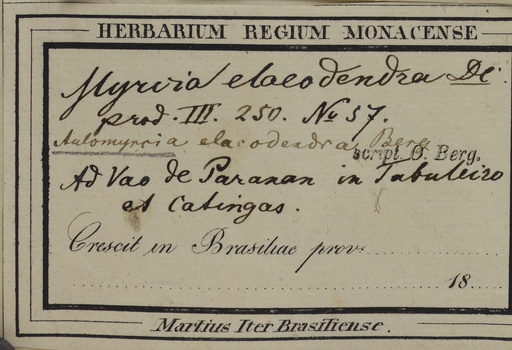 HERBARIUM REGIUM MONACENSE
Myrcia elaeodendra DC.
prod. III. 250. No 57.
Aulomyrcia elaeodendra Berg
script. O. Berg.
Ad Vao de Paranan in Tabuleiro
et Catingas.
Crescit in Brasiliae prov.
18
Martius Iter Brasiliense.